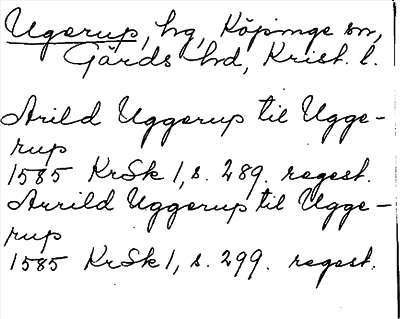 Ugerup, hg, Köpinge sn,
Gärds hd, Krist. l.
Arild Uggerup til Ugge-
rup
1585 KrSk 1, s. 289. regest.
Arrild Uggerup til Ugge-
rup
1585 KrSk 1, s. 299. regest.